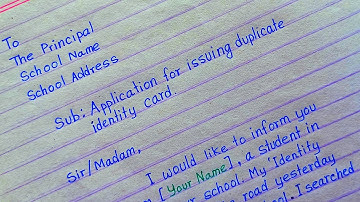 To
The Principal
School Name
School Address
Sub: Application for issuing duplicate
identity card.
Sir/Madam,
I would like to inform you
[Your Name], a student in
school. My 'Identity
road yesterday
I searched